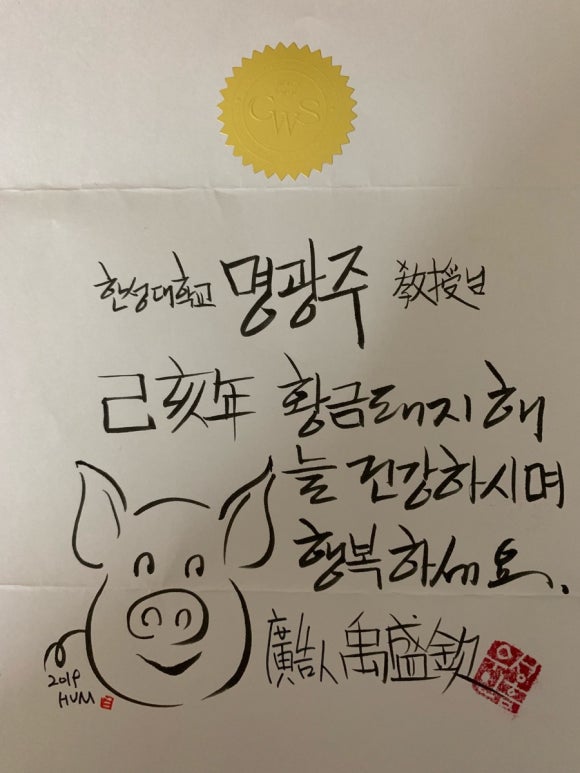 GWS
한성대학교 명광주 敎授님
己亥年 황금돼지 해
늘 건강하시며
행복하세요.
廣告人 禹盛欽
2019
HUM